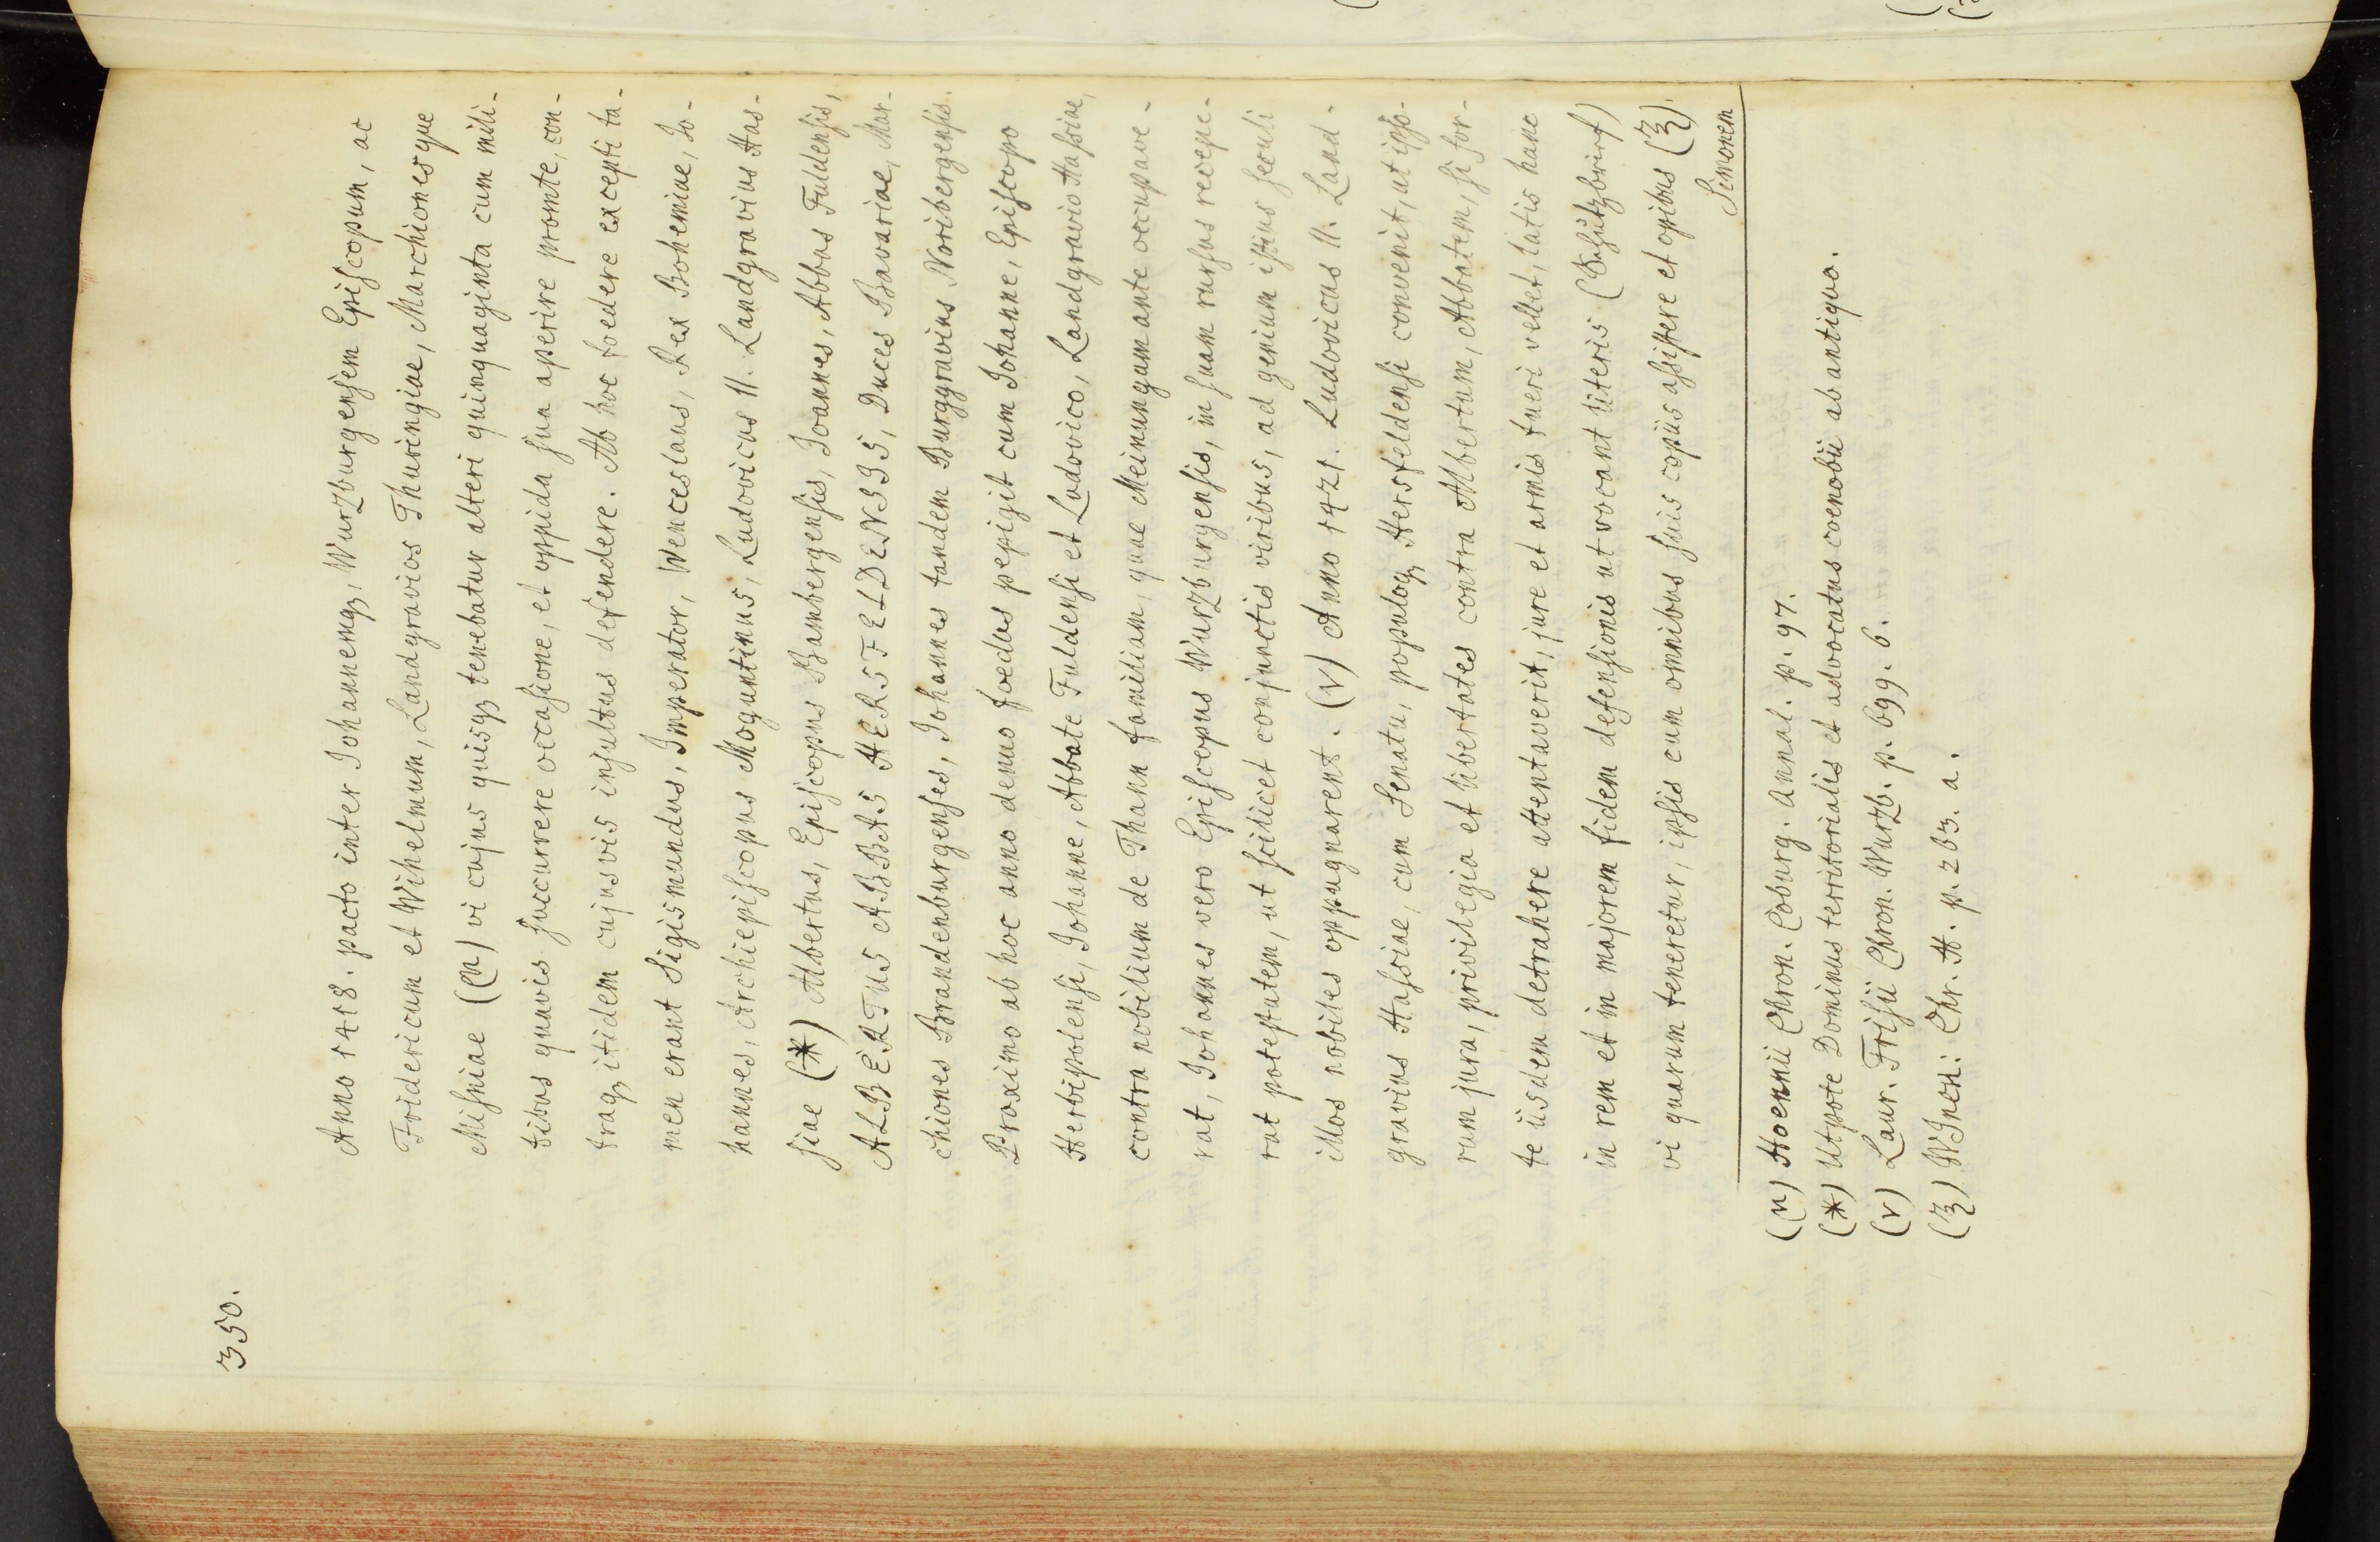 350.
Anno 1418. pacto inter Johannemq;, Wurzburgensem Episcopum, ac
Fridericum et Wihelmum, Landgravios Thuringiae, Marchionesque
Misniae (n) vi cujus quisq; tenebatur alteri quinquaginta cum mili-
tibus quavis succurrere occasione, et oppida sua aperire promte, con-
traq; itidem cujusvis insultus defendere. Ab hoc foedere excepti ta-
men erant Sigismundus, Imperator, Wenceslaus, Rex Bohemiae, Jo-
hannes, Archiepiscopus Moguntinus, Ludovicus II. Landgravius Has-
siae (*) Albertus, Episcopus Bambergensis, Joannes, Abbas Fuldensis,
ALBERTUS ABBAS HERSFELDENSIS, Duces Bavariae, Mar-
chiones Brandenburgenses, Johannes tandem Burggravius Noribergensis.
Proximo ab hoc anno denuo foedus pepigit cum Johanne, Episcopo
Herbipolensi, Johanne, Abbate Fuldensi et Ludovico, Landgravio Hassiae,
contra nobilium de Thann familiam, quae Meinungam ante occupave-
rat, Johannes vero Episcopus Wurzburgensis, in suam rursus recepe-
rat potestatem, ut scilicet conjunctis viribus, ad genium istius seculi
illos nobiles oppugnarent. (v) Anno 1421. Ludovicus II. Land-
gravius Hassiae, cum Senatu, populoq; Hersfeldensi convenit, ut ipso-
rum jura, privilegia et libertates contra Albertum, Abbatem, si for-
te iisdem detrahere attentaverit, jure et armis tueri vellet, latis hanc
in rem et in majorem fidem defensionis ut vocant literis (Schützbrief)
vi quarum teneretur, ipsis cum omnibus suis copiis assistere et opibus (ʒ).
Simonem
(n) Hoennii Chron. Coburg. Annal. p. 97.
(*) Utpote Dominus territorialis et advocatus coenobii ab antiquo.
(v) Laur. Frisii Chron. Wurzb. p. 699. 6.
(ʒ) Chr. H. p. 263. a.